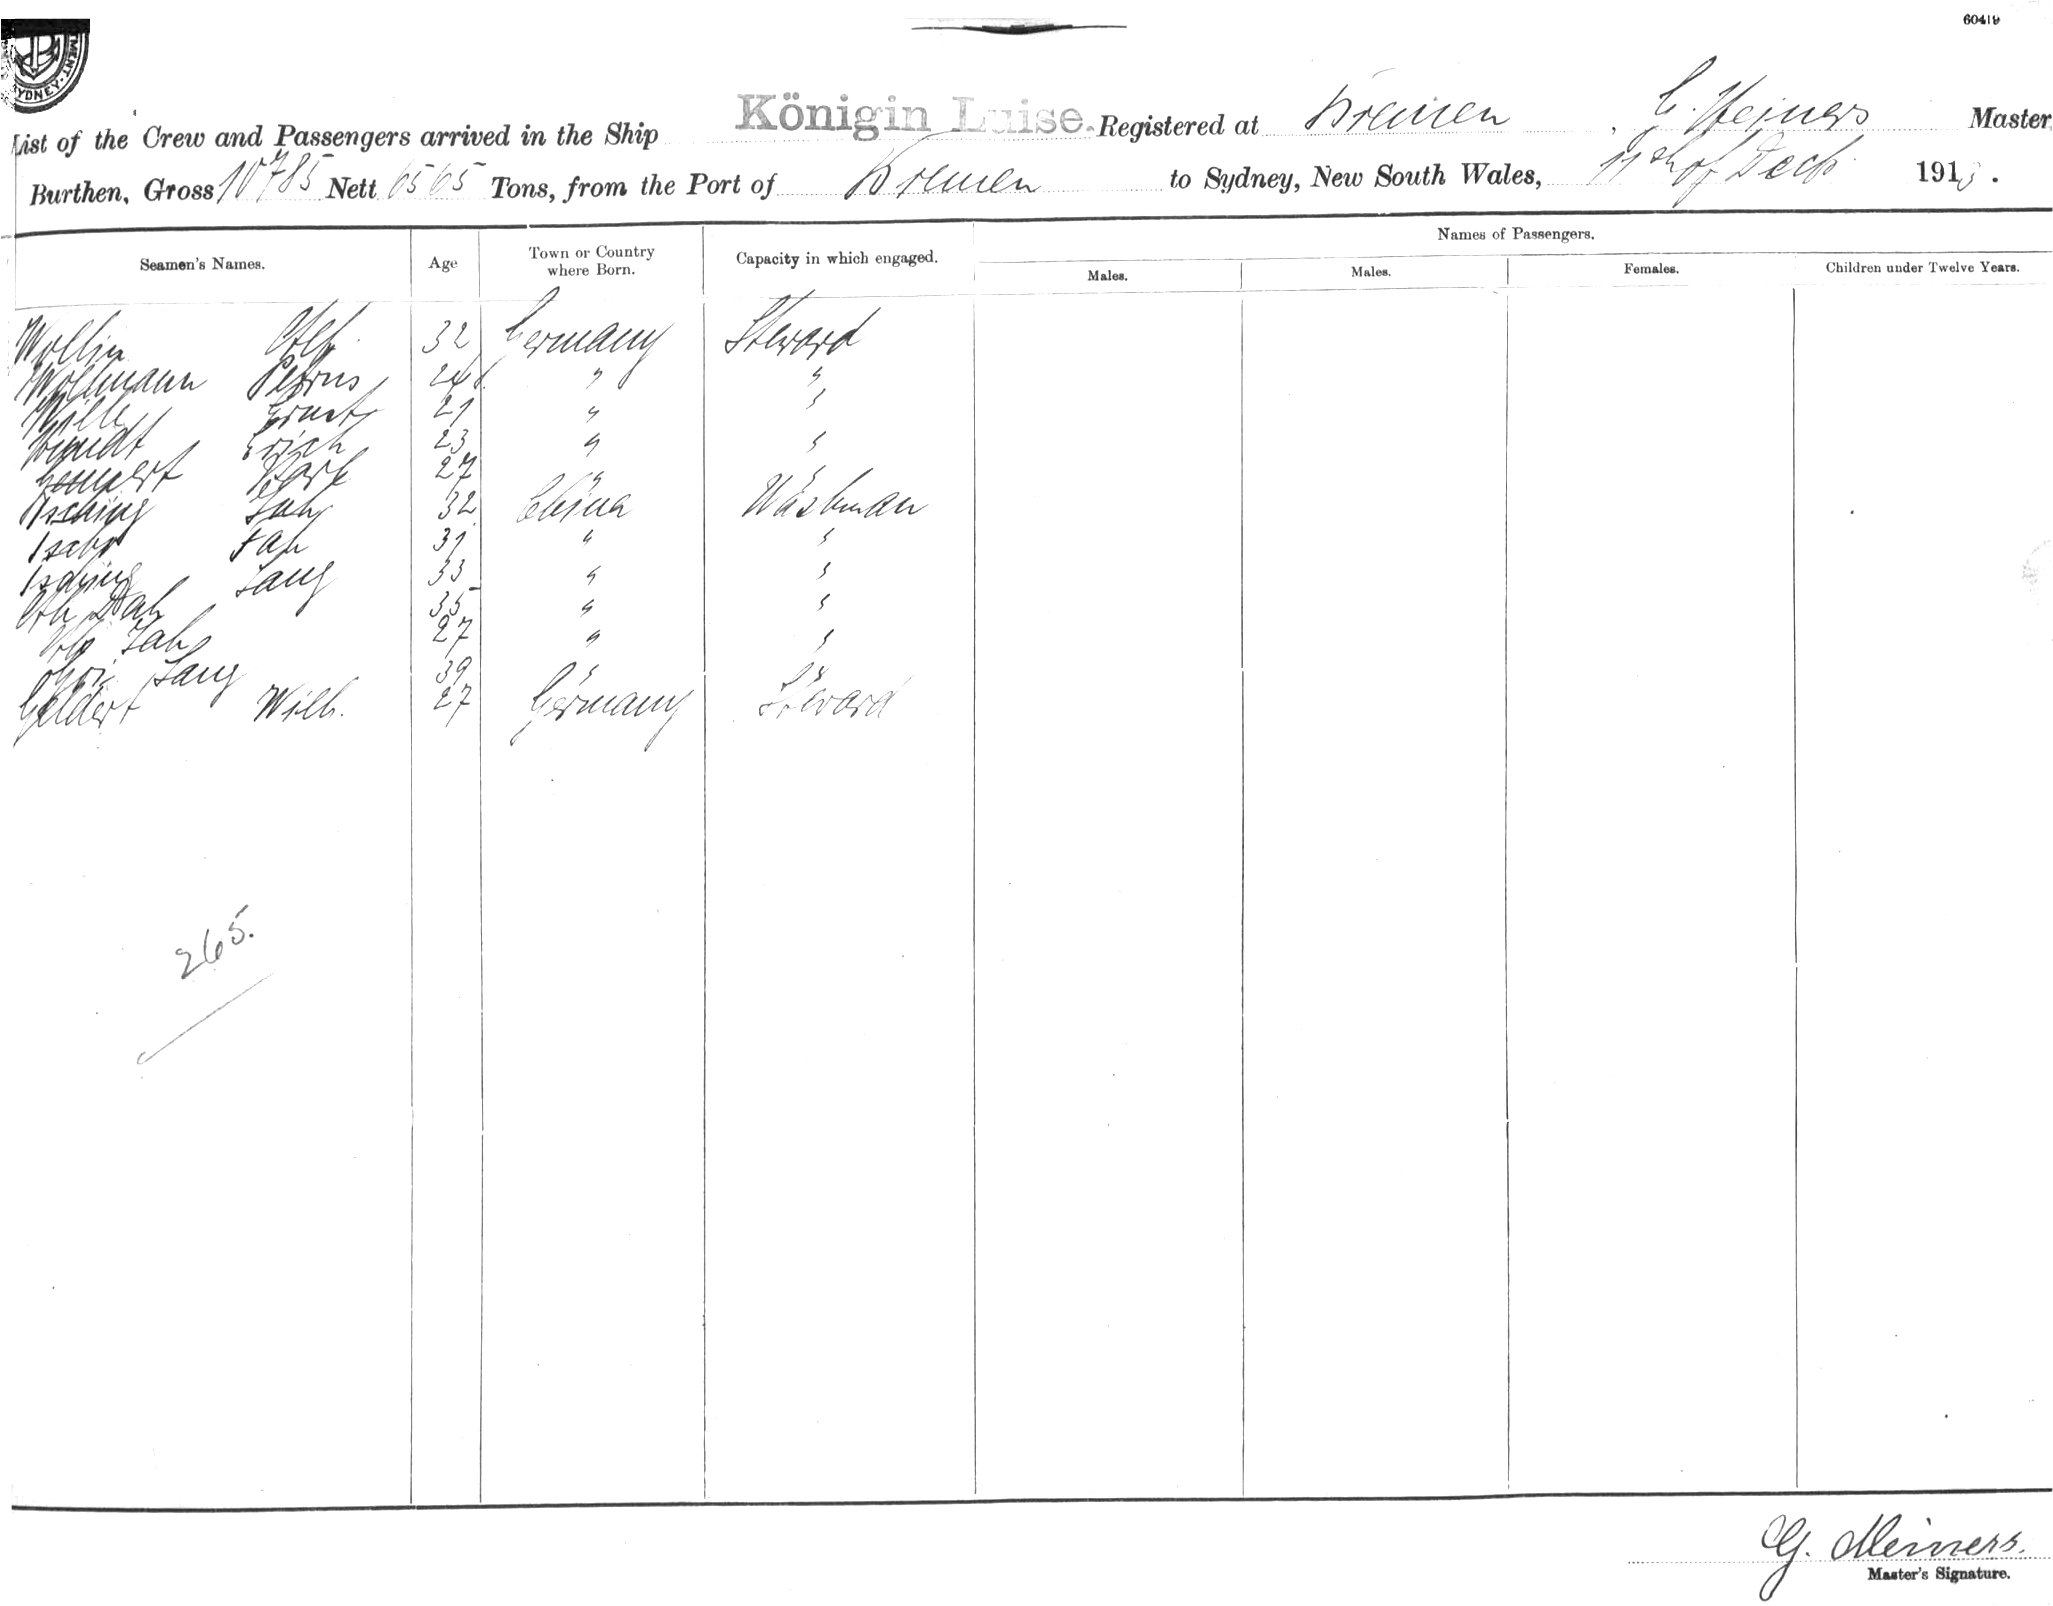 60419
MENT.
SYDNEY
List of the Crew and Passengers arrived in the Ship Königin Luise. Registered at Bremen, C. Meiners Master
Burthen, Gross 10785 Nett 6565 Tons, from the Port of Bremen to Sydney, New South Wales, 11th of Decb. 1913.
Names of Passengers.
Seamen's Names. Age Town or Country where Born. Capacity in which engaged. Males. Males. Females. Children under Twelve Years.
Wollin 32 Germany Steward
Wollmann Petrus 24 " "
Wille Ernst 21 " "
Wendt Erich 23 " "
Gempert Karl 27 " "
Tsching 32 China Washman
Fah 31 " "
Tsching Sang 33 " "
Dah 35 " "
Fah 27 " "
Sang 39 " "
Geldert Wilh. 27 Germany Steward
265.
G. Meiners.
Master's Signature.